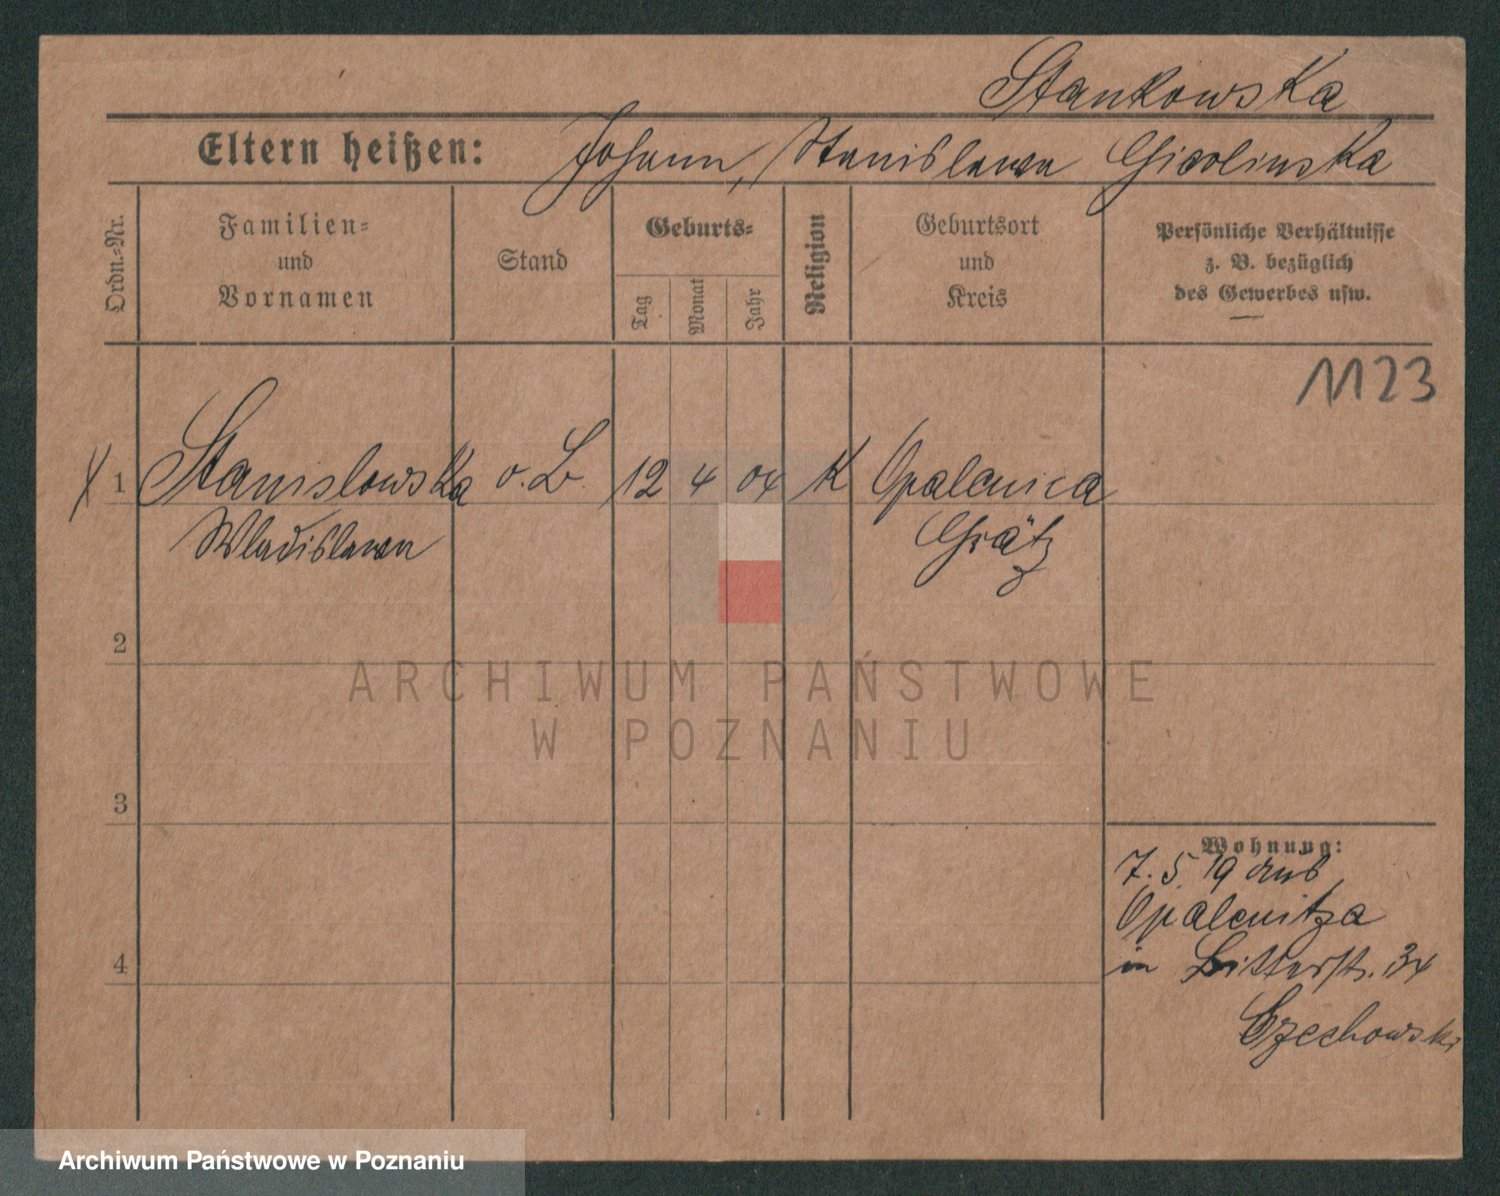 Stankowska
Eltern heißen: Johann, Stanislawa
Ordn.-Nr.
Familien-
und
Vornamen
Stand
Geburts-
Tag
Monat
Jahr
Religion
Geburtsort
und
Kreis
Persönliche Verhältnisse
z. B. bezüglich
des Gewerbes usw.
1123
X 1 Stanislowska o. B. 12 4 04 K Opalenica
Wladislawa Grätz
2
3
4
Wohnung:
7. 5. 19 aus
Opalenitza
in Bitterstr. 34
Czechowski
ARCHIWUM PAŃSTWOWE
W POZNANIU
Archiwum Państwowe w Poznaniu